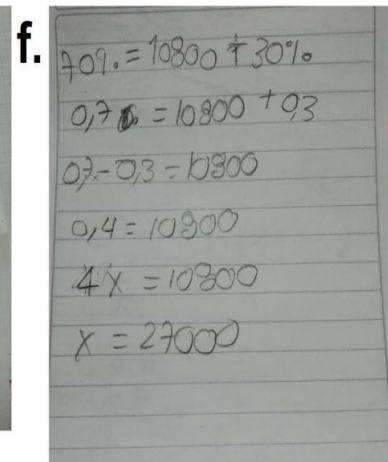 f.
70% = 10800 + 30%
0,7 = 10800 + 0,3
0,7x - 0,3 = 10800
0,4 = 10800
4x = 10800
x = 27000